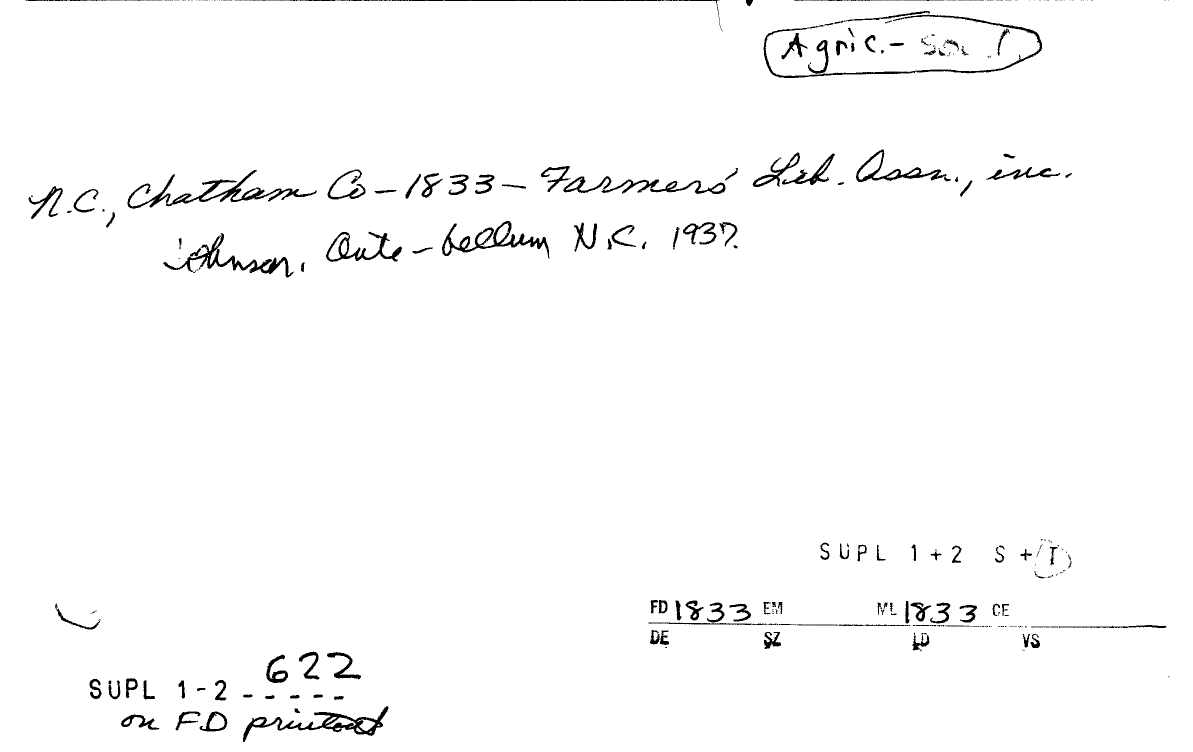 Agric. - Soc.
N.C., Chatham Co - 1833 - Farmers' Lib. Assn., inc.
Johnson. Ante-bellum N.C. 1937.
SUPL 1+2 S+T
FD 1833 EM ML 1833 CE
DE SZ LD VS
622
SUPL 1-2 -----
on FD printout